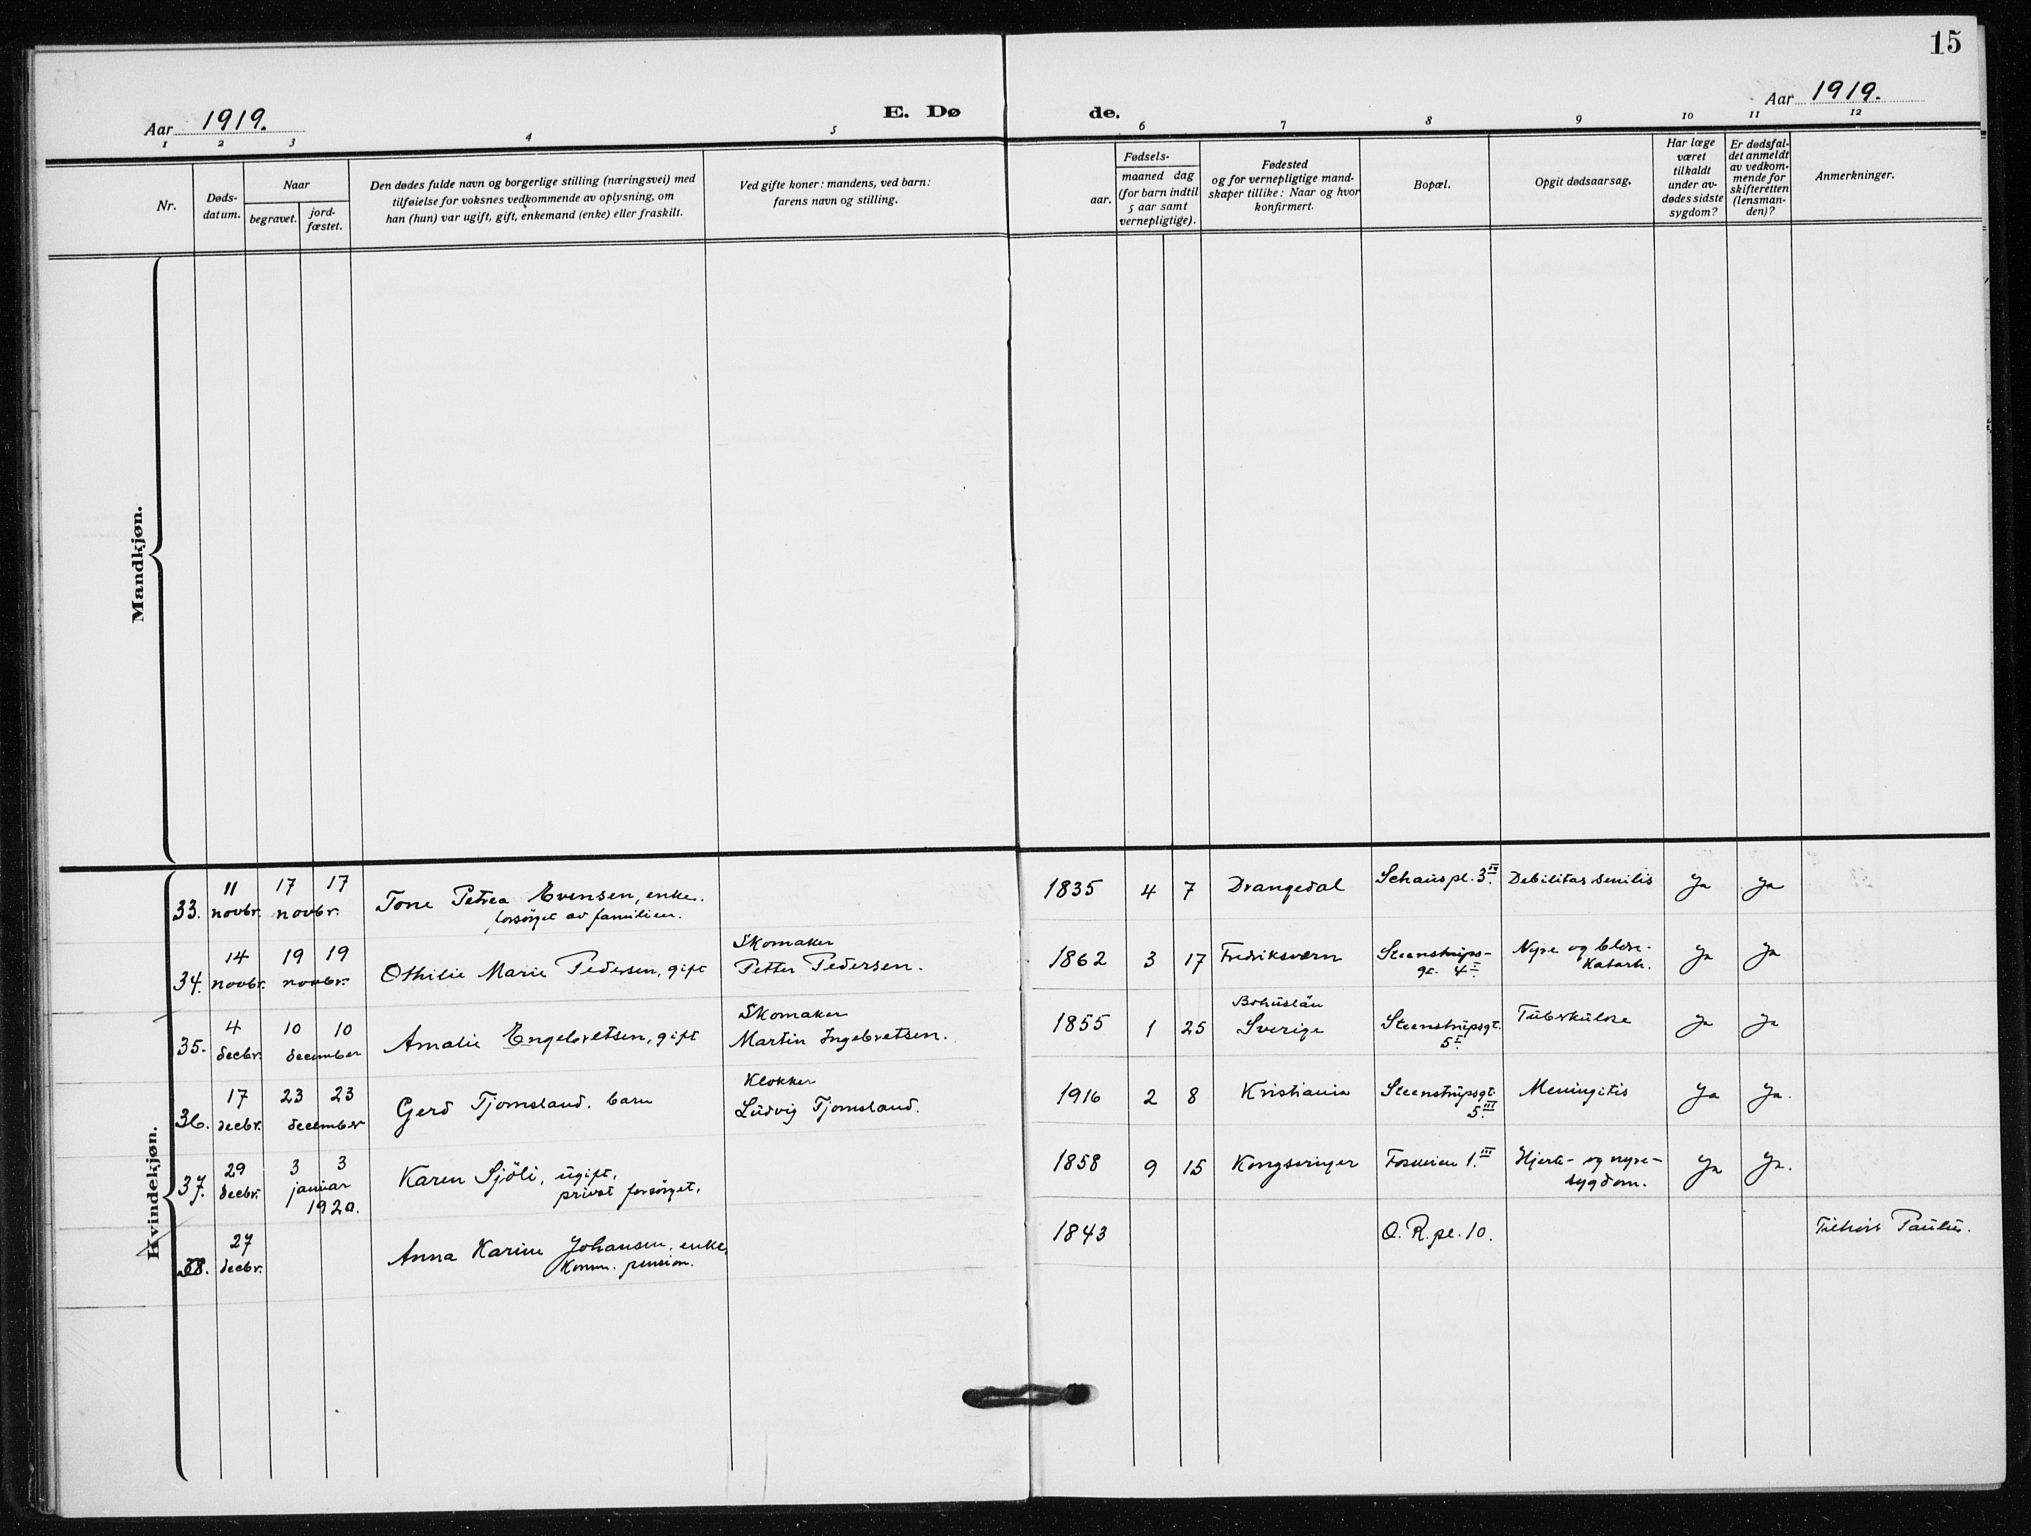 15
Aar 1919.
E. Dø
de.
Aar 1919.
1 2 3 4 5 6 7 8 9 10 11 12
Nr.
Døds-
datum.
Naar
begravet.
jord-
fæstet.
Den dødes fulde navn og borgerlige stilling (næringsvei) med
tilføielse for voksnes vedkommende av oplysning, om
han (hun) var ugift, gift, enkemand (enke) eller fraskilt.
Ved gifte koner: mandens, ved barn:
farens navn og stilling.
aar.
Fødsels-
maaned dag
(for barn indtil
5 aar samt
vernepligtige).
Fødested
og for vernepligtige mand-
skaper tillike: Naar og hvor
konfirmert.
Bopæl.
Opgit dødsaarsag.
Har læge
været
tilkaldt
under av-
dødes sidste
sygdom?
Er dødsfal-
det anmeldt
av vedkom-
mende for
skifteretten
(lensman-
den)?
Anmerkninger.
Mandkjøn.
Kvindekjøn.
33. 11 novbr. 17 17 novbr.
Tone Petrea Evensen, enke.
forsørget av familien.
1835 4 7 Drangedal Schauspl. 3 IV. Debilitas senilis Ja Ja
34. 14 novbr. 19 19 novbr.
Othilie Marie Pedersen, gift
Skomaker
Petter Pedersen.
1862 3 17 Fredriksværn Steenstrups-
gt. 4 I. Nyre og blære-
katarh. Ja Ja
35. 4 decbr. 10 10 december
Amalie Engebretsen, gift
Skomaker
Martin Ingebretsen.
1855 1 25 Bohuslän
Sverige Steenstrupsgt.
5 I. Tuberkulose Ja Ja
36. 17 decbr. 23 23 december
Gerd Tjomsland. barn
Klokker
Ludvig Tjomsland.
1916 2 8 Kristiania Steenstrupsgt.
5. III Meningitis Ja Ja.
37. 29 decbr. 3 3 januar
1920.
Karen Sjöli, ugift,
privat forsørget.
1858 9 15 Kongsvinger Fosveien 1. III Hjerte- og nyre-
sygdom. Ja Ja.
38. 27 decbr.
Anna Karine Johansen, enke
Komm. pension.
1843 O. R. pl. 10. Tilhört Paulus.